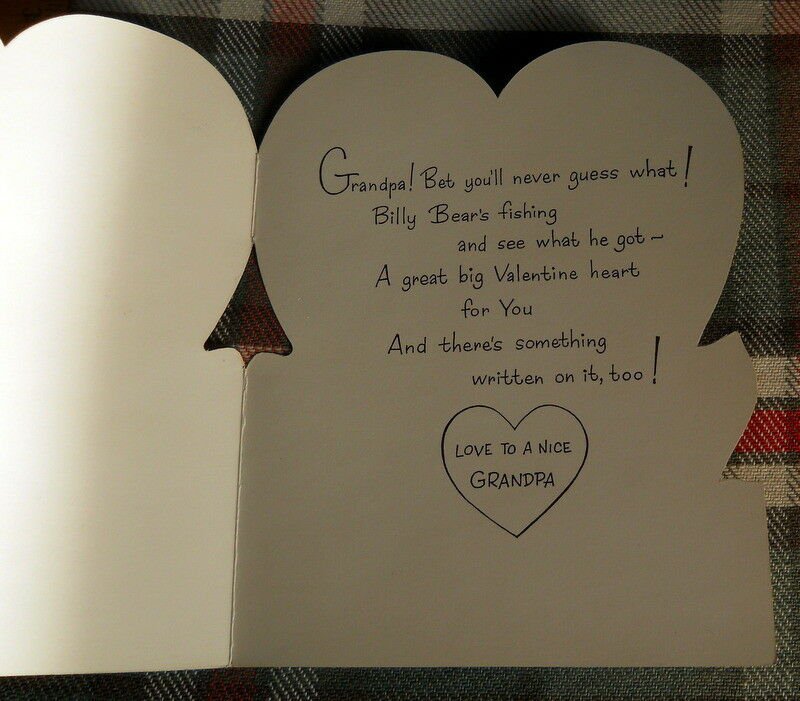 Grandpa! Bet you'll never guess what!
Billy Bear's fishing
and see what he got~
A great big Valentine heart
for You
And there's something
written on it, too!
LOVE TO A NICE
GRANDPA